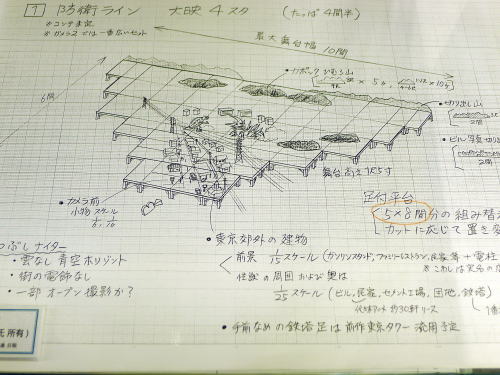 1 防衛ライン 大映4スタ (たっぱ4間半)
※コンテ未定
※カメラ2では一番広いセット
最大舞台幅 10間
6間
・カポック ひむろ山
×5ヶ,
×10ヶ
・切り出し山
2間
・ビル写真切り
2間
舞台高さ1尺5寸
足付平台
5×8間分の組み替え
カットに応じて置き変
・カメラ前
小物スケール
つぶしナイター
・雲なし青空ホリゾント
・街の電飾なし
・一部オープン撮影か?
・東京郊外の建物
前景 1/15スケール (ガソリンスタンド、ファミリーレストラン、民家等+電柱
怪獣の周囲および奥は
1/25スケール (ビル、民家、セメント工場、団地、鉄塔)
約30軒リース
・手前なめの鉄塔足は前作東京タワー流用予定
氏所有)